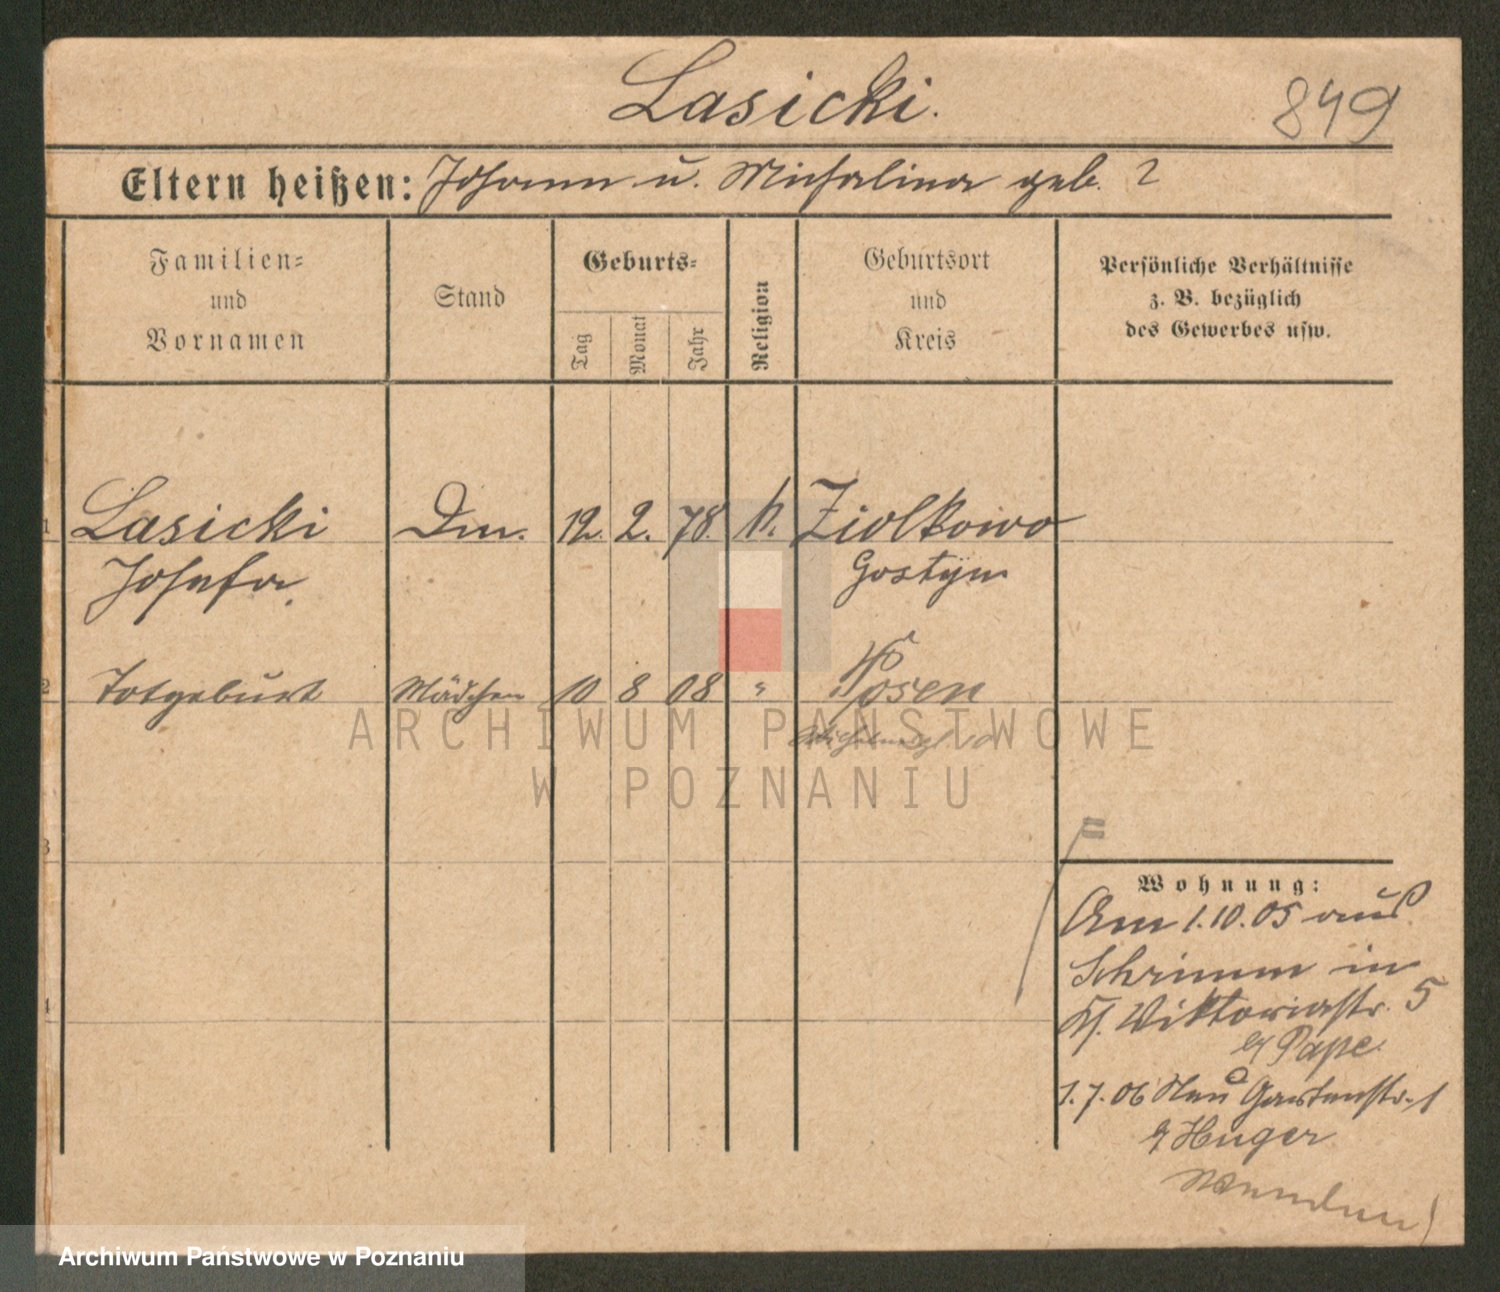 Lasicki.
849
Eltern heißen: Johann u. Michalina geb. ?
Familien=
und
Vornamen
Stand
Geburts=
Tag
Monat
Jahr
Religion
Geburtsort
und
Kreis
Persönliche Verhältnisse
z. B. bezüglich
des Gewerbes usw.
1 Lasicki Dm. 12. 2. 78. k. Ziolkowo
Josefa. Gostyn
2 Totgeburt Mädchen 10 8 08 " Posen
3
4
Wohnung:
Am 1.10.05 aus
Schrimm in
Viktoriastr. 5
b/ Pape.
1.7.06 Neu Gartenstr. 1
b/ Huger
ARCHIWUM PAŃSTWOWE
W POZNANIU
Archiwum Państwowe w Poznaniu